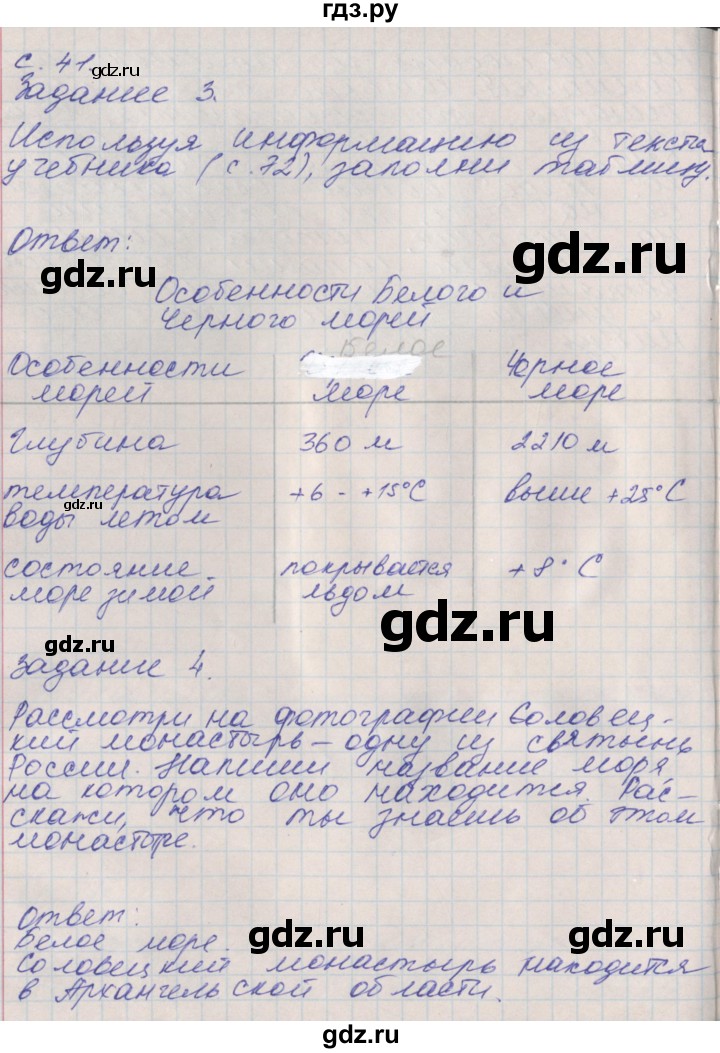 гдз.ру
с. 41.
gdz.ru
Задание 3.
Используя информацию из текста
учебника (с. 72), заполни таблицу.
Ответ:
gdz.ru
gdz.ru
Особенности Белого и
Черного морей
Особенности морей | Белое море | Черное море
Глубина | 360 м | 2210 м
температура воды летом | +6 - +15°С | выше +25°С
gdz.ru
состояние море зимой | покрывается льдом | +8°С
gdz.ru
gdz.ru
Задание 4.
Рассмотри на фотографии Соловец-
кий монастырь – одну из святынь
России. Напиши название моря,
на котором оно находится. Рас-
скажи, что ты знаешь об этом
монастыре.
Ответ:
gdz.ru
gdz.ru
Белое море.
Соловецкий монастырь находится
в Архангельской области.
gdz.ru
gdz.ru